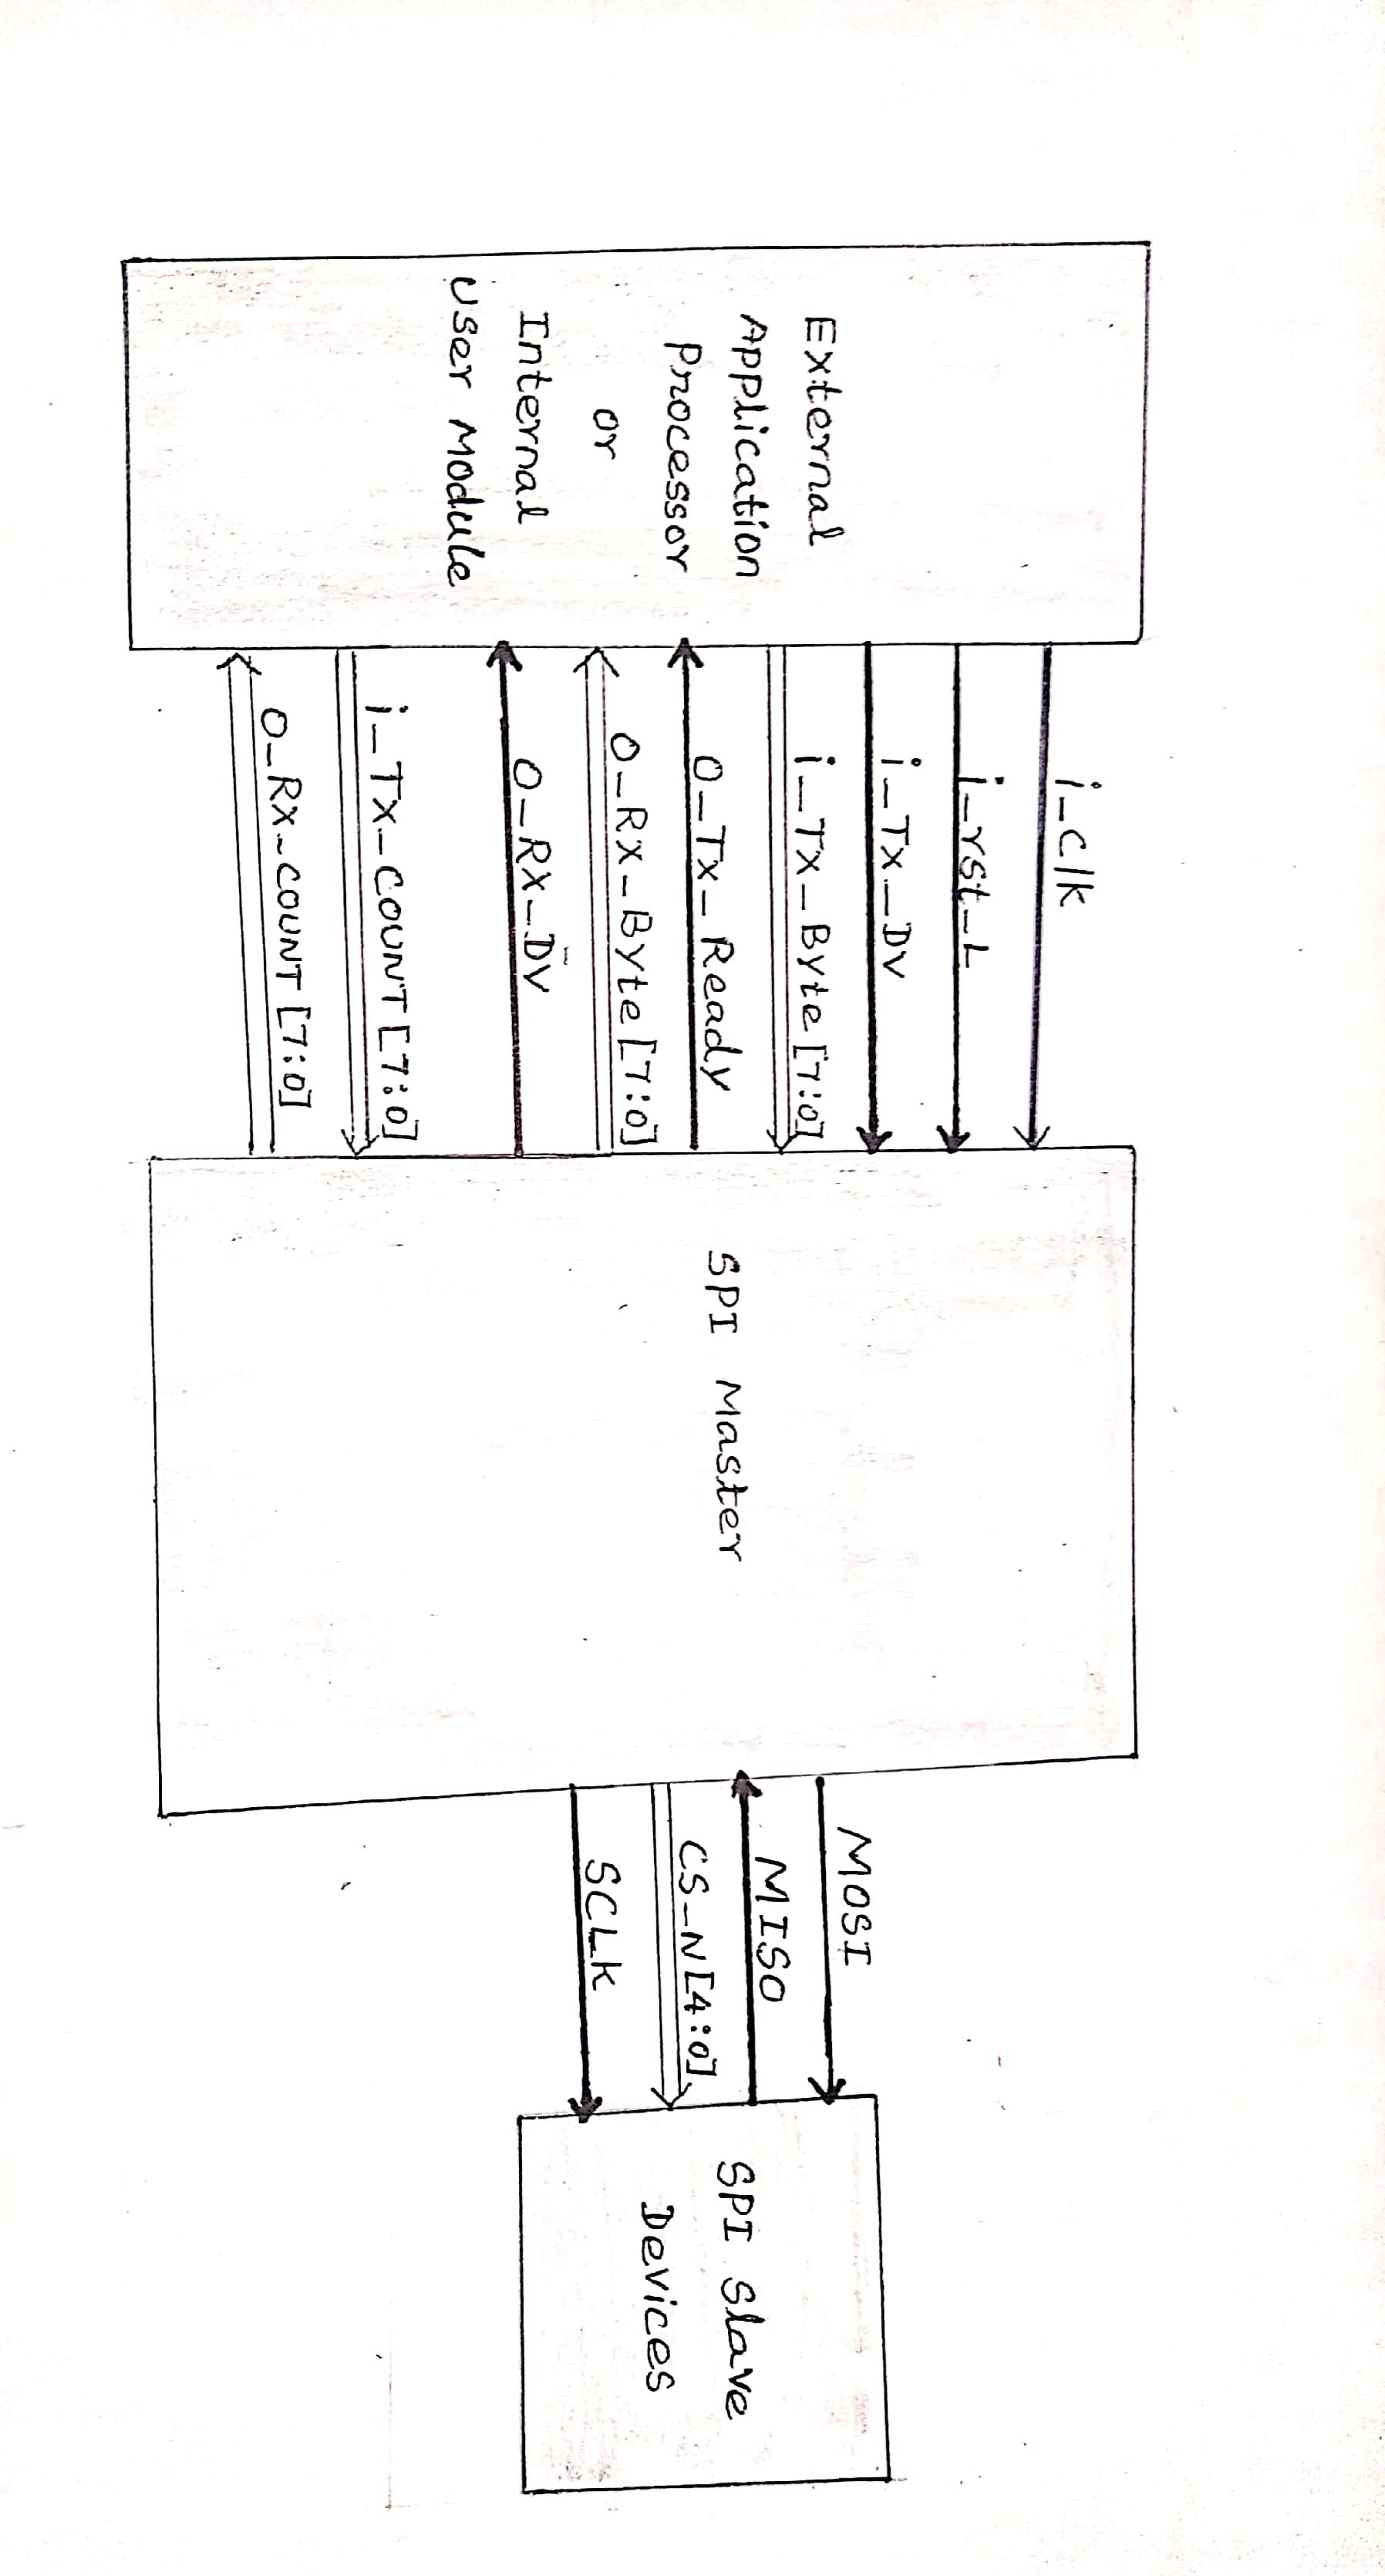 External
Application
Processor
or
Internal
User Module
i_clk
i_rst_L
i_Tx_DV
i_Tx_Byte[7:0]
O_Tx_Ready
O_Rx_Byte[7:0]
O_Rx_DV
i_Tx_COUNT[7:0]
O_Rx_COUNT[7:0]
SPI Master
MOSI
MISO
CS_N[4:0]
SCLK
SPI Slave
Devices